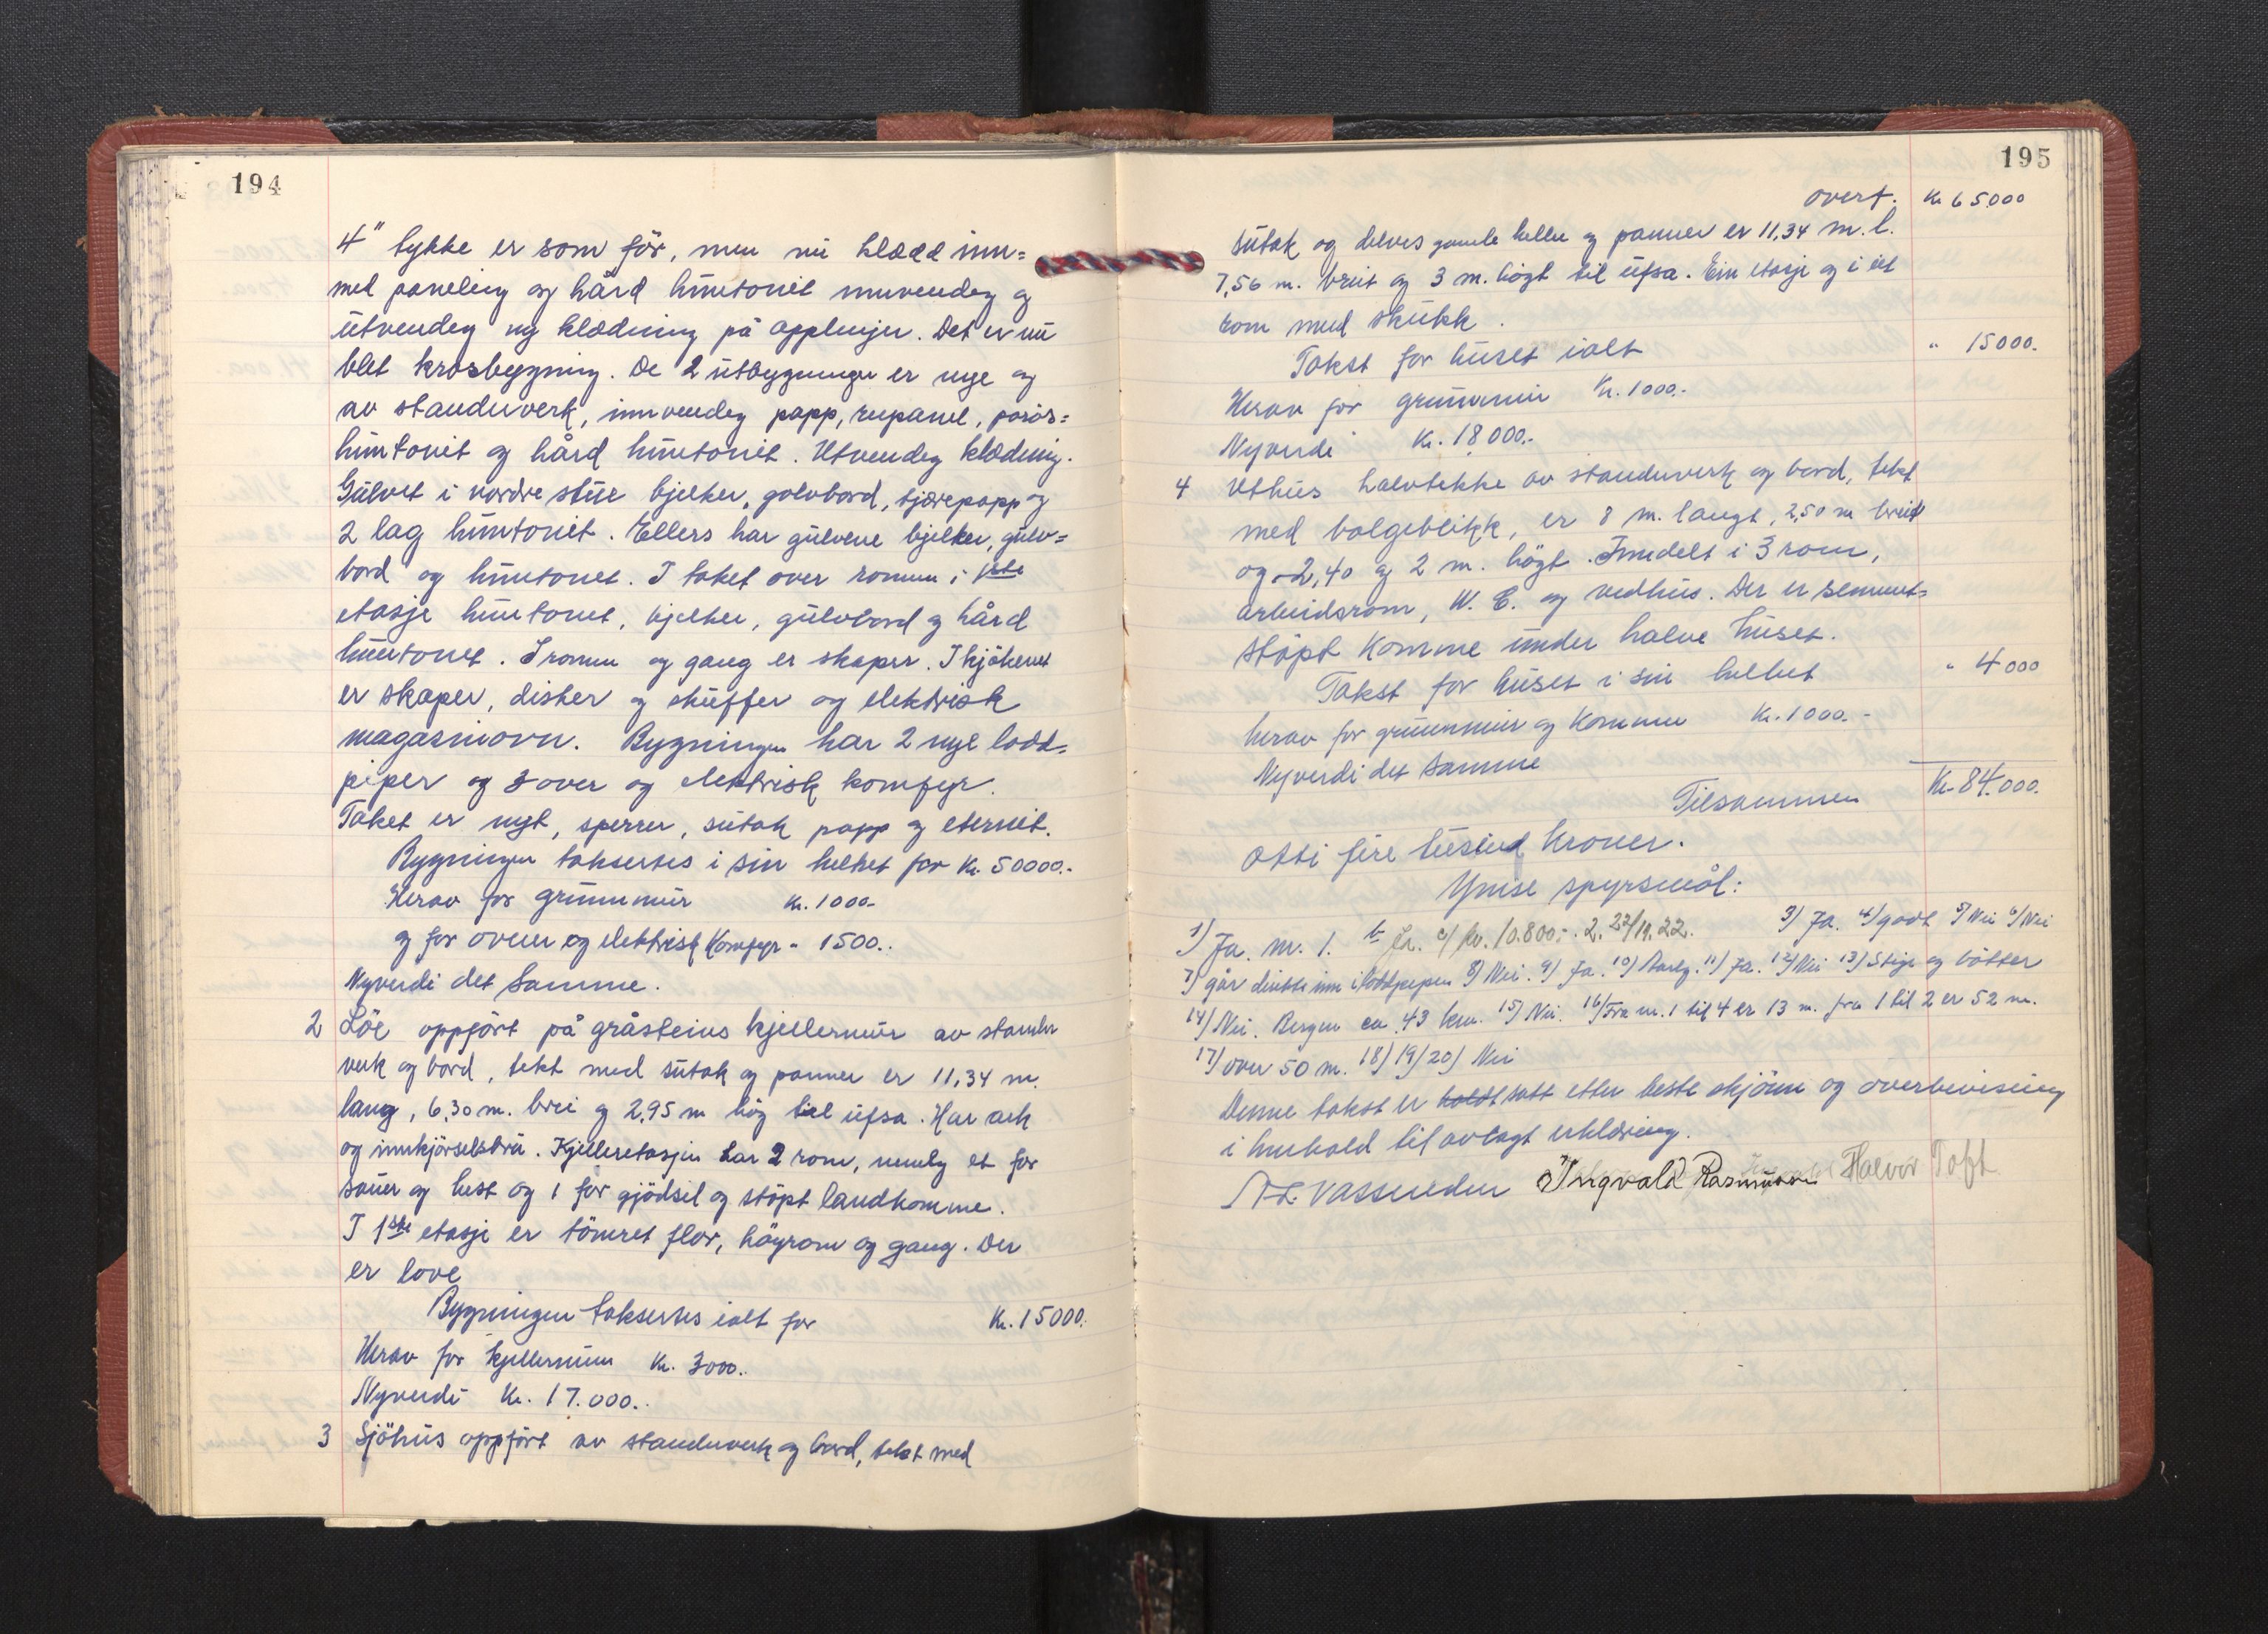 194
4" tykke er som før, men nu klædd inn=
med paneling og hård huntonit innvendig og
utvendig ny klædning på opplenjer. Det er nu
blet krosbygning. De 2 utbygninger er nye og
av standerverk, innvendig papp, rupanel, porøs=
huntonit og hård huntonit. Utvendig klædning.
Gulvet i nordre stue bjelker, golvbord, tjærepapp og
2 lag huntonit. Ellers har gulvene bjelker, gulv=
bord og huntonit. I taket over romen i 1ste
etasje huntonit, bjelker, gulvbord og hård
huntonit. I romen og gang er skaper. I kjøkenet
er skaper, disker og skuffer og elektrisk
magasinovn. Bygningen har 2 nye lodd=
piper og 3 over og elektrisk komfyr.
Taket er nyt, sperrer, sutak papp og eternit.
Bygningen takseres i sin helhet for Kr. 50000.-
Herav for grunnmur Kr. 1000-
og for ovner og elektrisk Komfyr " 1500.-
Nyverdi det samme.
2 Löe oppfört på gråsteins kjellermur av stander
verk og bord, tekt med sutak og panner er 11,34 m.
lang, 6,30 m. brei og 2,95 m høg til ufsa. Har ark
og innkjørselsbru. Kjelleretasjen har 2 rom, nemlig et for
sauer og hest og 1 for gjødsel og støpt landkomme.
I 1ste etasje er tömret flor, höyrom og gang. Der
er love
Bygningen takseres ialt for Kr. 15000.
Herav for kjellermuren Kr. 3000.-
Nyverdi Kr. 17.000.-
3 Sjöhus oppfört av standerverk og bord, tekt med
195
overf. Kr 65000
sutak og delvis gamle heller og panner er 11,34 m. l.
7,56 m. breit og 3 m. högt til ufsa. Ein etasje og i eit
rom med skukk.
Takst for huset ialt " 15000.
Herav for grunnmur Kr. 1000.-
Nyverdi Kr. 18.000.-
4 Uthus halvtekke av standerverk og bord, tekt
med bolgeblikk, er 8 m. langt, 2,50 m breit
og 2,40 og 2 m. högt. Inndelt i 3 rom,
arbeidsrom, W. C. og vedhus. Der er sement=
stöpt Komme under halve huset.
Takst for huset i sin helhet " 4000
herav for grunnmur og Kommen Kr. 1000.-
Nyverdi det samme
Tilsammen Kr. 84.000.
Otti fire tusind Kroner.
Ymse spyrsmål:
1) Ja. nr. 1. b Ja. c) kr. 10.800.- 2. 22/11.22. 3) Ja. 4) godt 5) Nei 6) Nei
7) går direkte inn i loddpipen 8) Nei. 9) Ja. 10) Aarleg. 11) Ja. 12) Nei 13) Stige og bötter
14) Nei. Bergen ca. 43 km. 15) Nei. 16) Fra nr. 1 til 4 er 13 m. fra 1 til 2 er 52 m.
17) over 50 m. 18) 19) 20) Nei
Denne takst er satt etter beste skjönn og overbevisning
i henhold til avlagt erklæring.
Vassenden Ingvald Rasmussen Halvor Toft